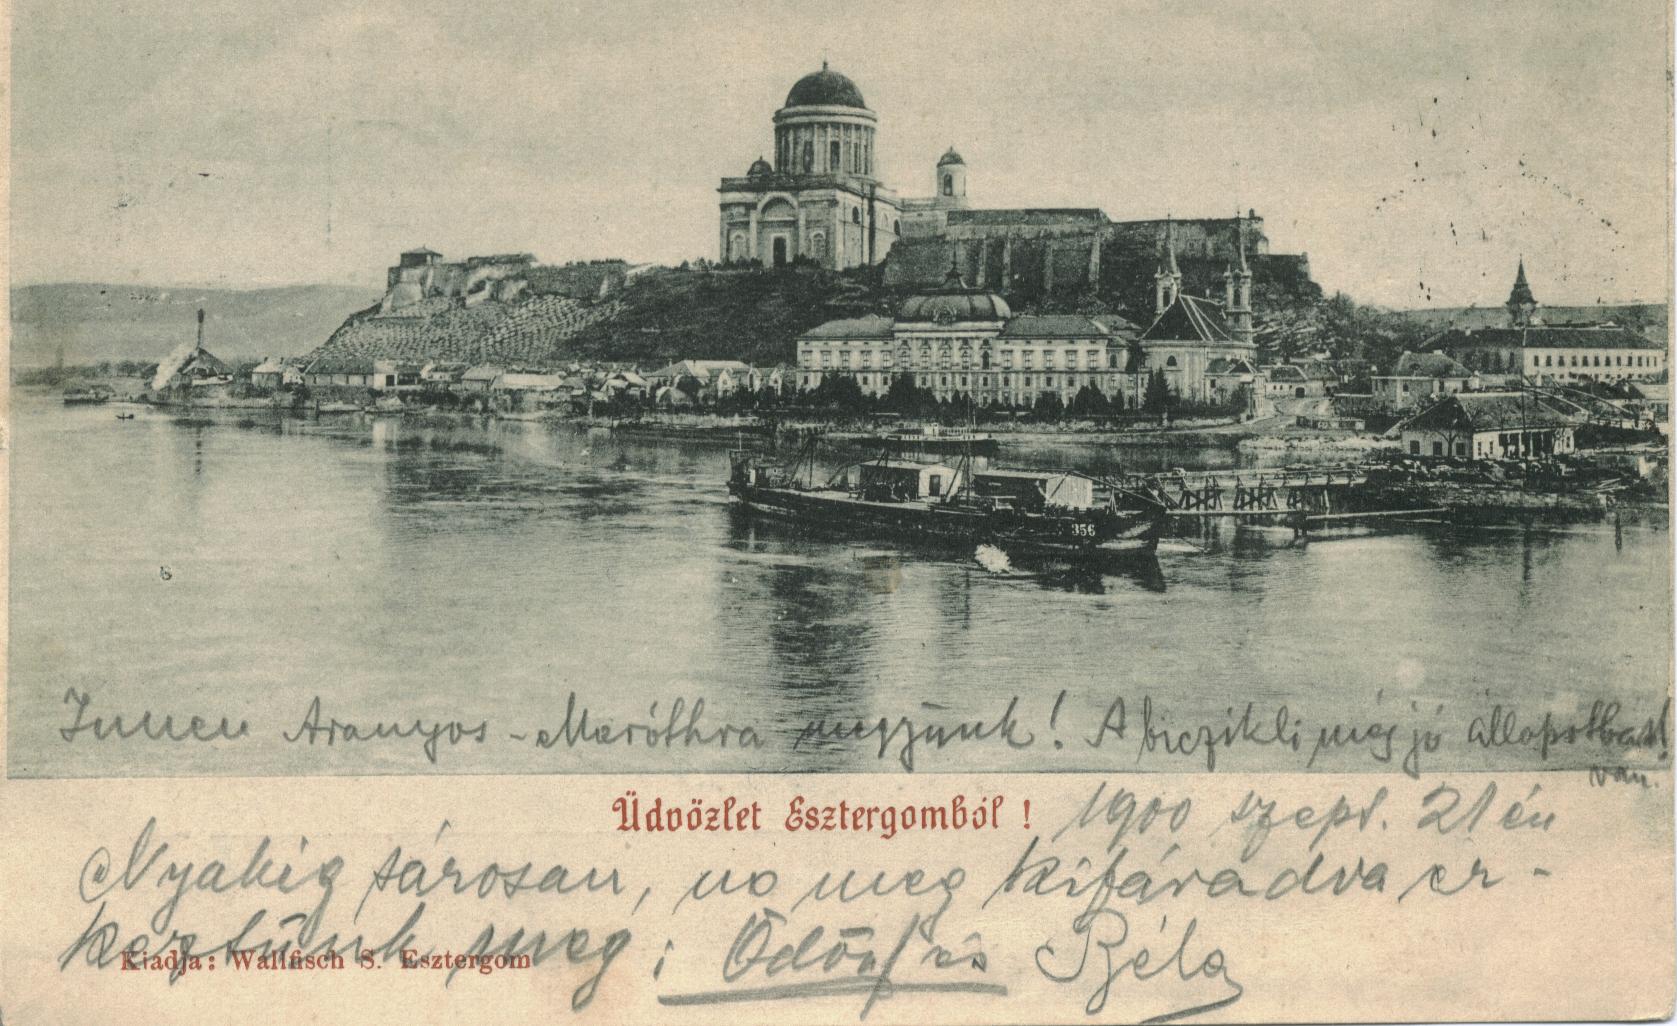 356
Innen Aranyos-Maróthra megyünk! A biczikli még jó állapotban
van.
Üdvözlet Esztergomból !
1900 szept. 21 én
Nyakig sárosan, no meg kifáradva ér-
keztünk meg; Ödön és Béla
Kiadja: Wallfisch S. Esztergom